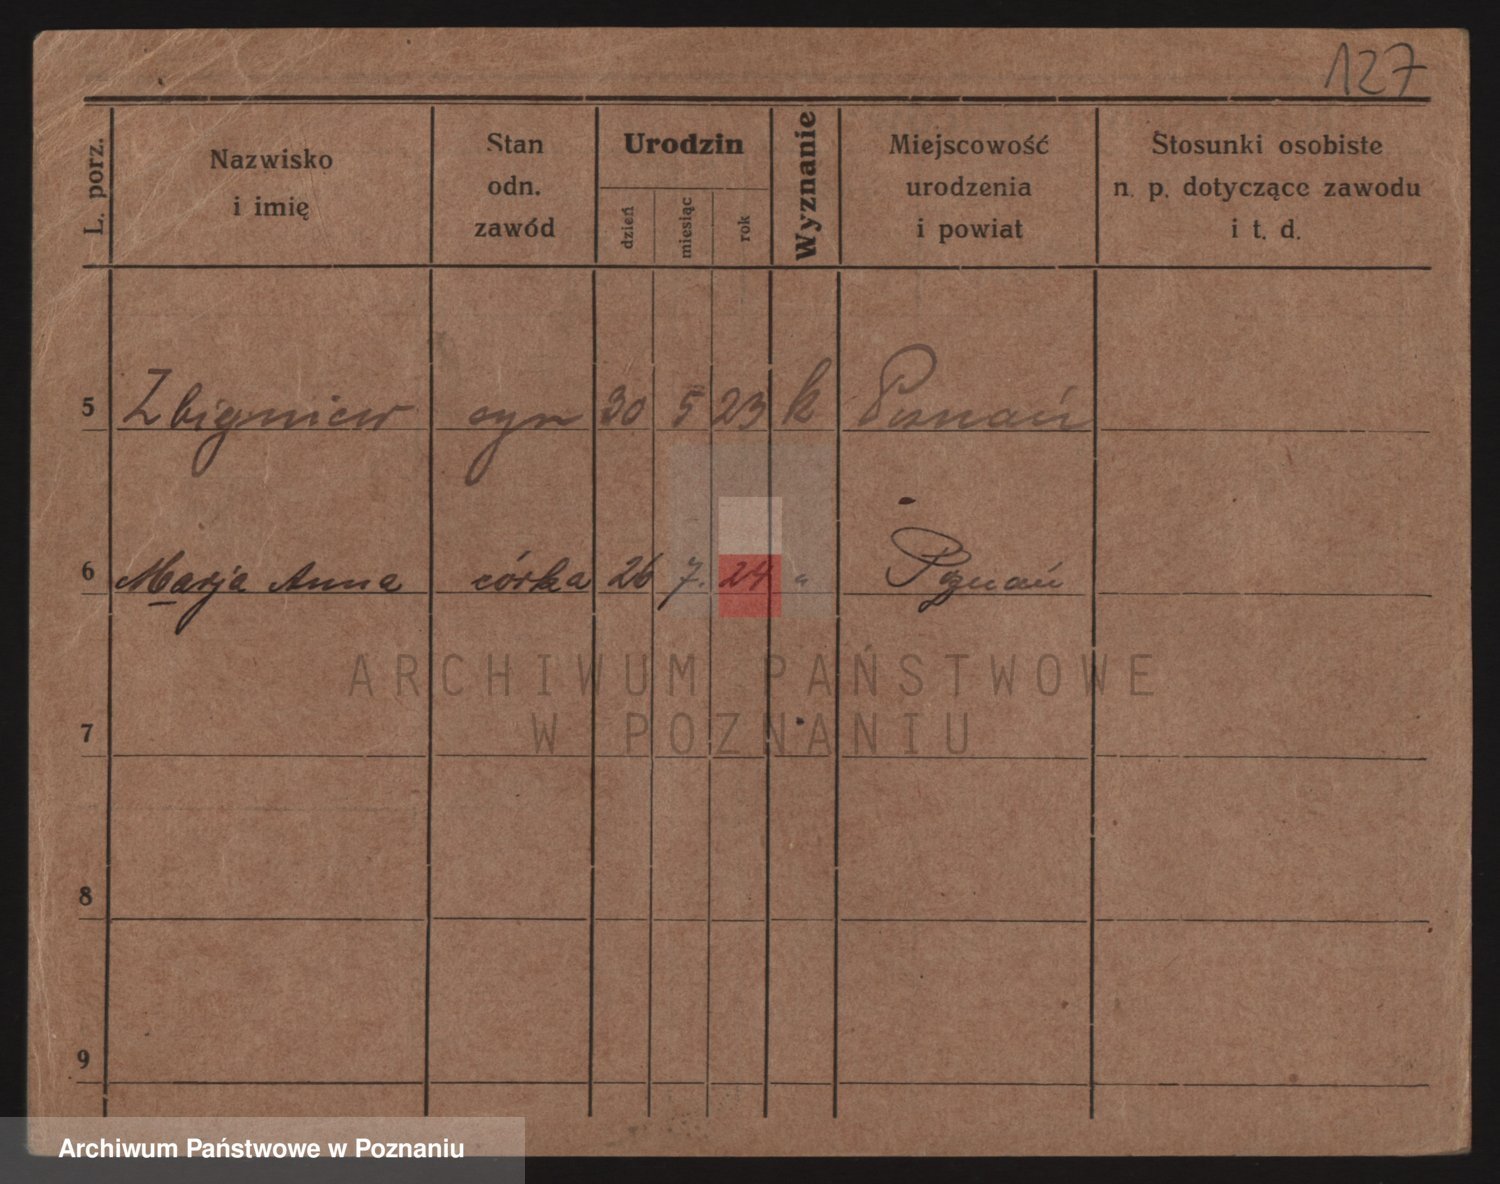 127
L. porz.
Nazwisko
i imię
Stan
odn.
zawód
Urodzin
dzień
miesiąc
rok
Wyznanie
Miejscowość
urodzenia
i powiat
Stosunki osobiste
n. p. dotyczące zawodu
i t. d.
5 Zbigniew syn 30 5 23 k Poznań
6 Marja Anna córka 26 7. 24 " Poznań
ARCHIWUM PAŃSTWOWE
W POZNANIU
7
8
9
Archiwum Państwowe w Poznaniu